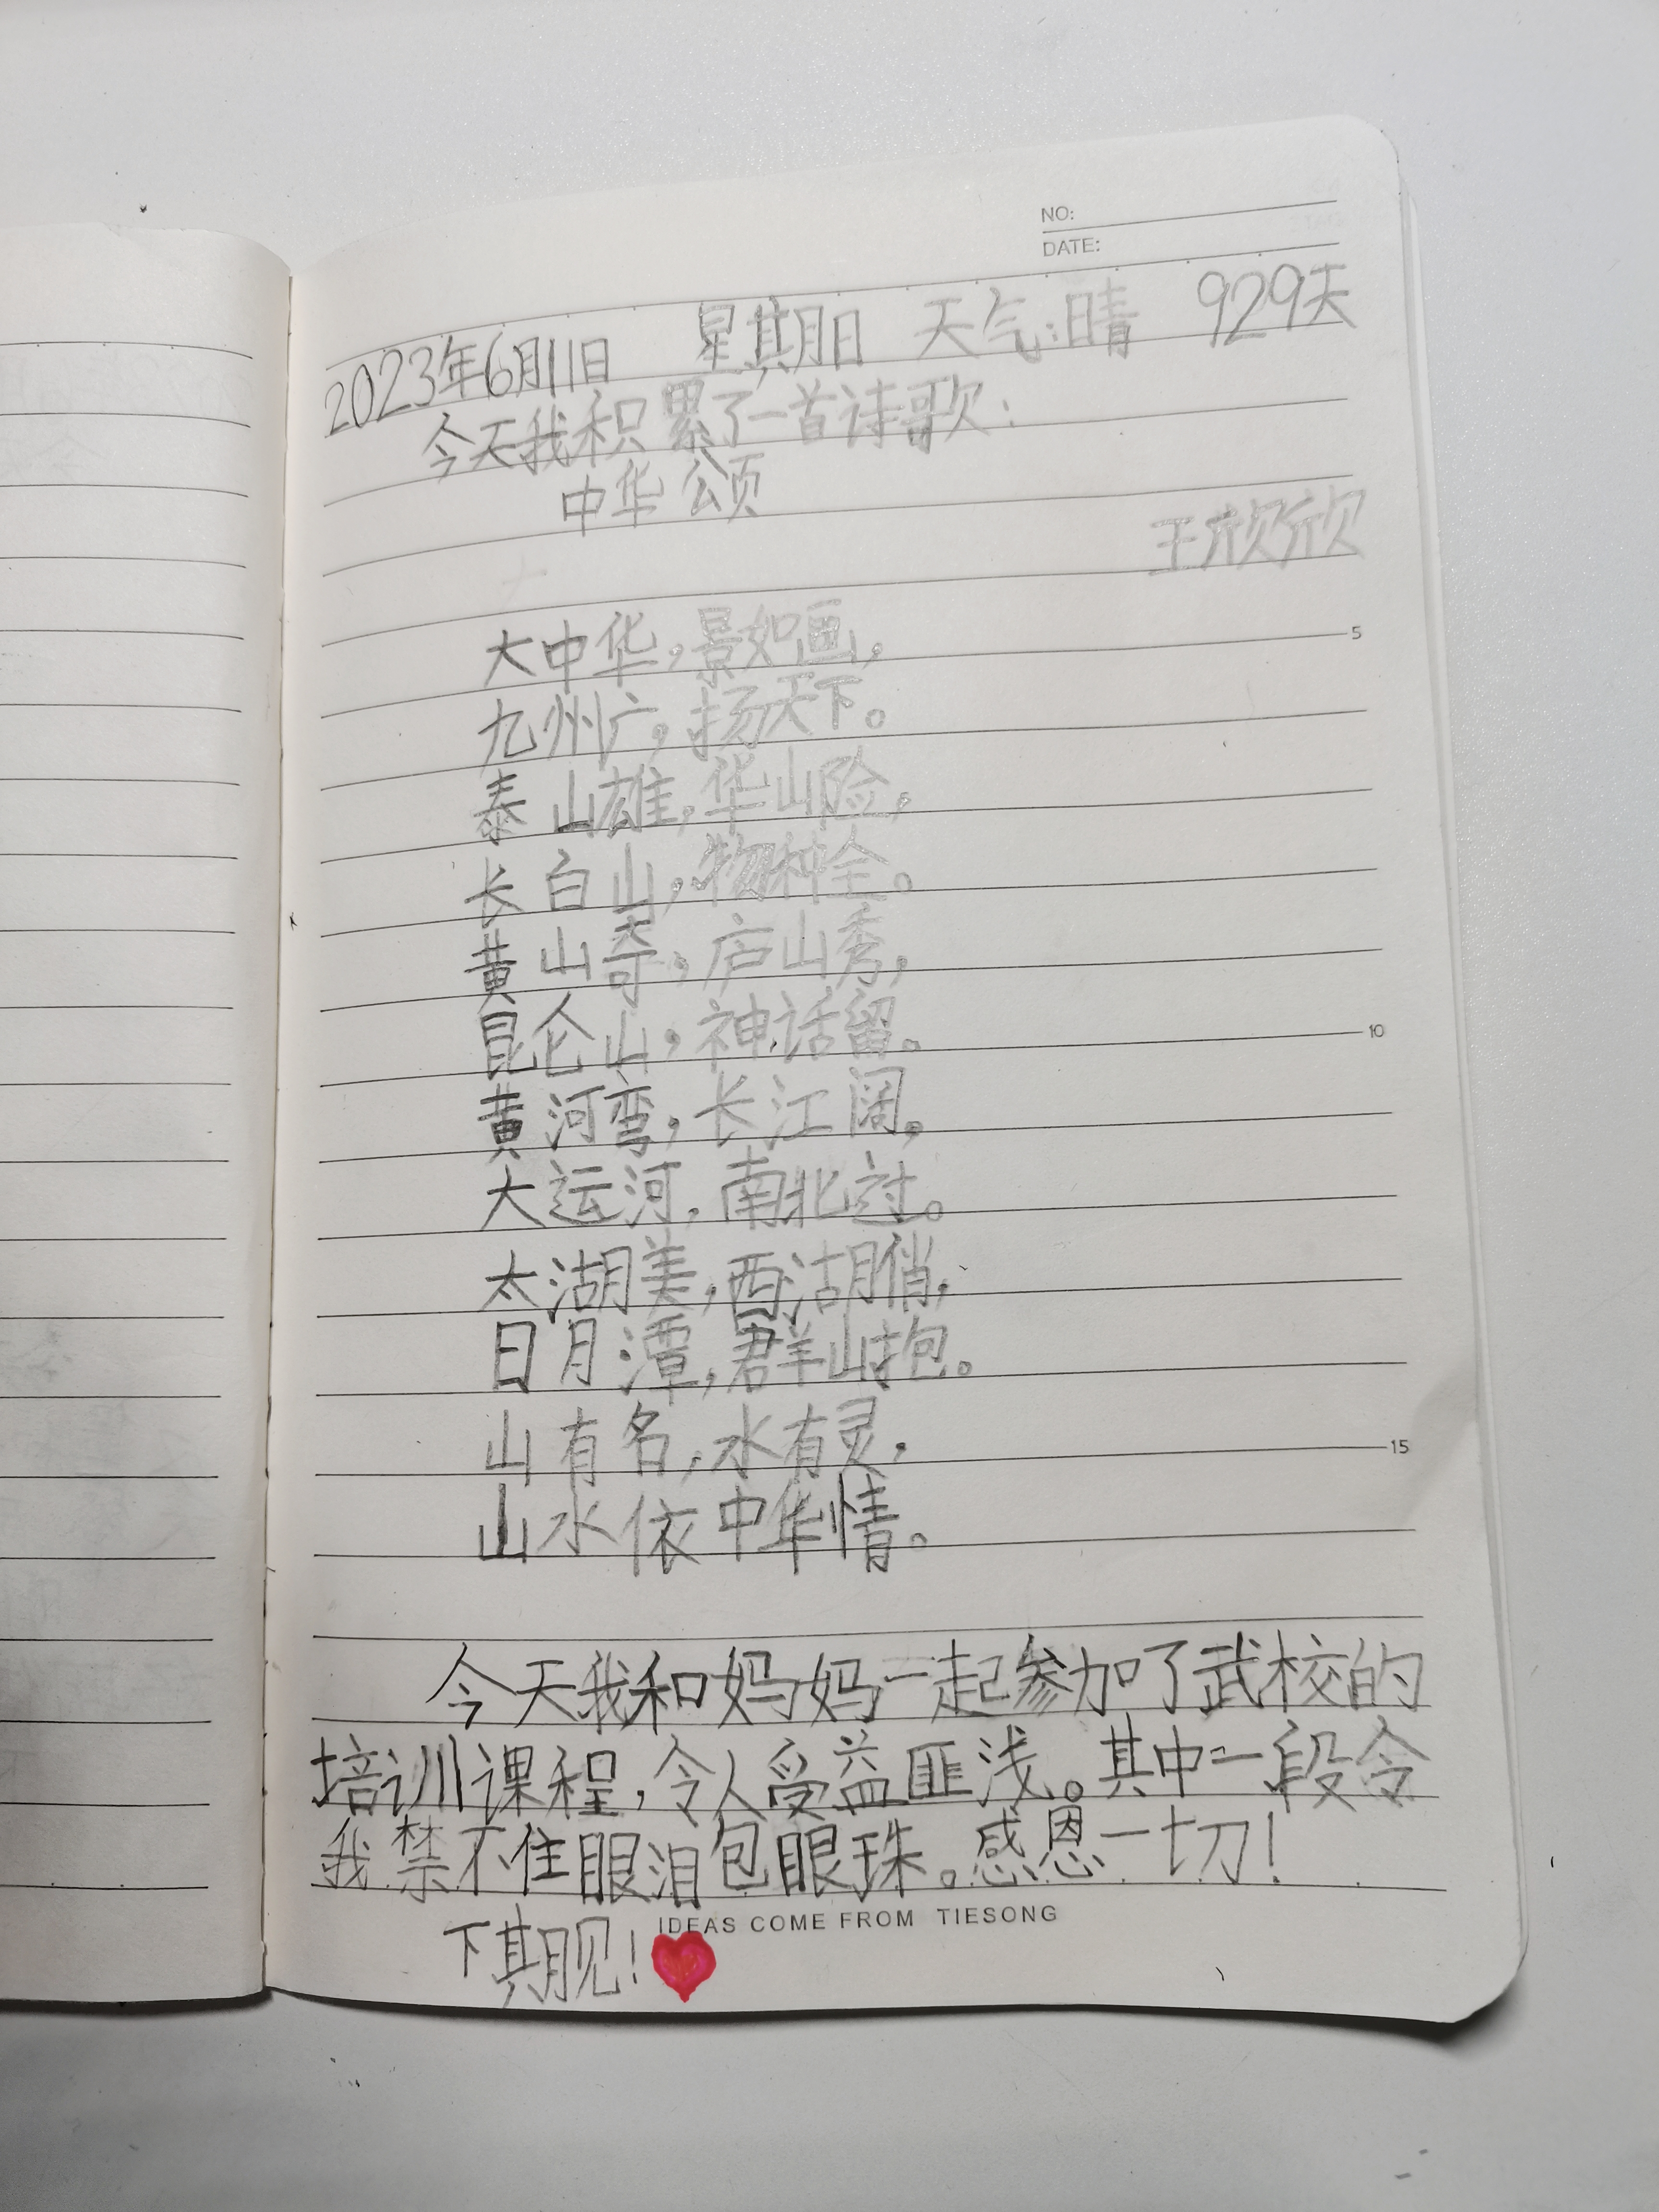 NO:
DATE:
2023年6月11日 星期日 天气:晴 929天
今天我积累了一首诗歌:
中华颂
王欣欣
大中华,景如画,
5
九州广,扬天下。
泰山雄,华山险,
长白山,物种全。
黄山奇,庐山秀,
昆仑山,神话留。
10
黄河弯,长江阔,
大运河,南北过。
太湖美,西湖俏,
日月潭,群山抱。
山有名,水有灵,
15
山水依中华情。
今天我和妈妈一起参加了武校的
培训课程,令人受益匪浅。其中一段令
我禁不住眼泪包眼珠。感恩一切!
IDEAS COME FROM TIESONG
下期见!